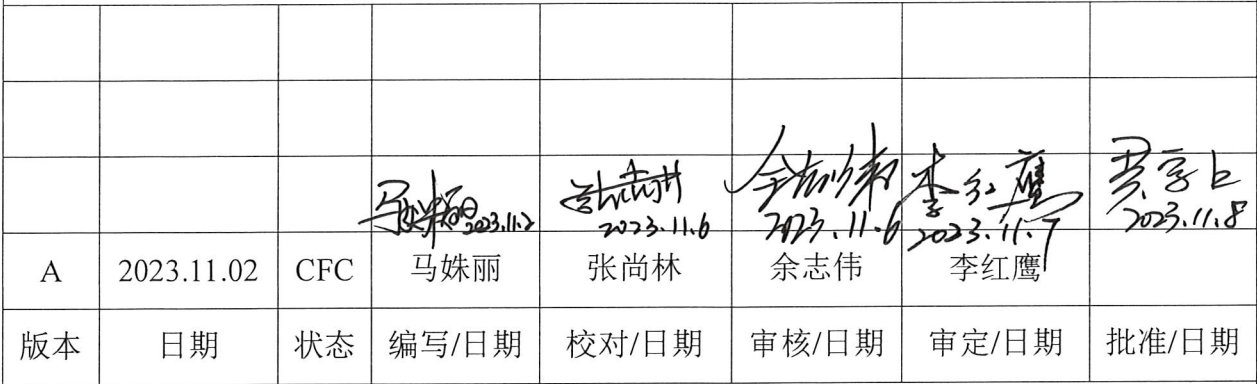 马姝丽 2023.11.2 2023.11.6 2023.11.6 李红鹰 2023.11.7 2023.11.8
A 2023.11.02 CFC 马姝丽 张尚林 余志伟 李红鹰
版本 日期 状态 编写/日期 校对/日期 审核/日期 审定/日期 批准/日期